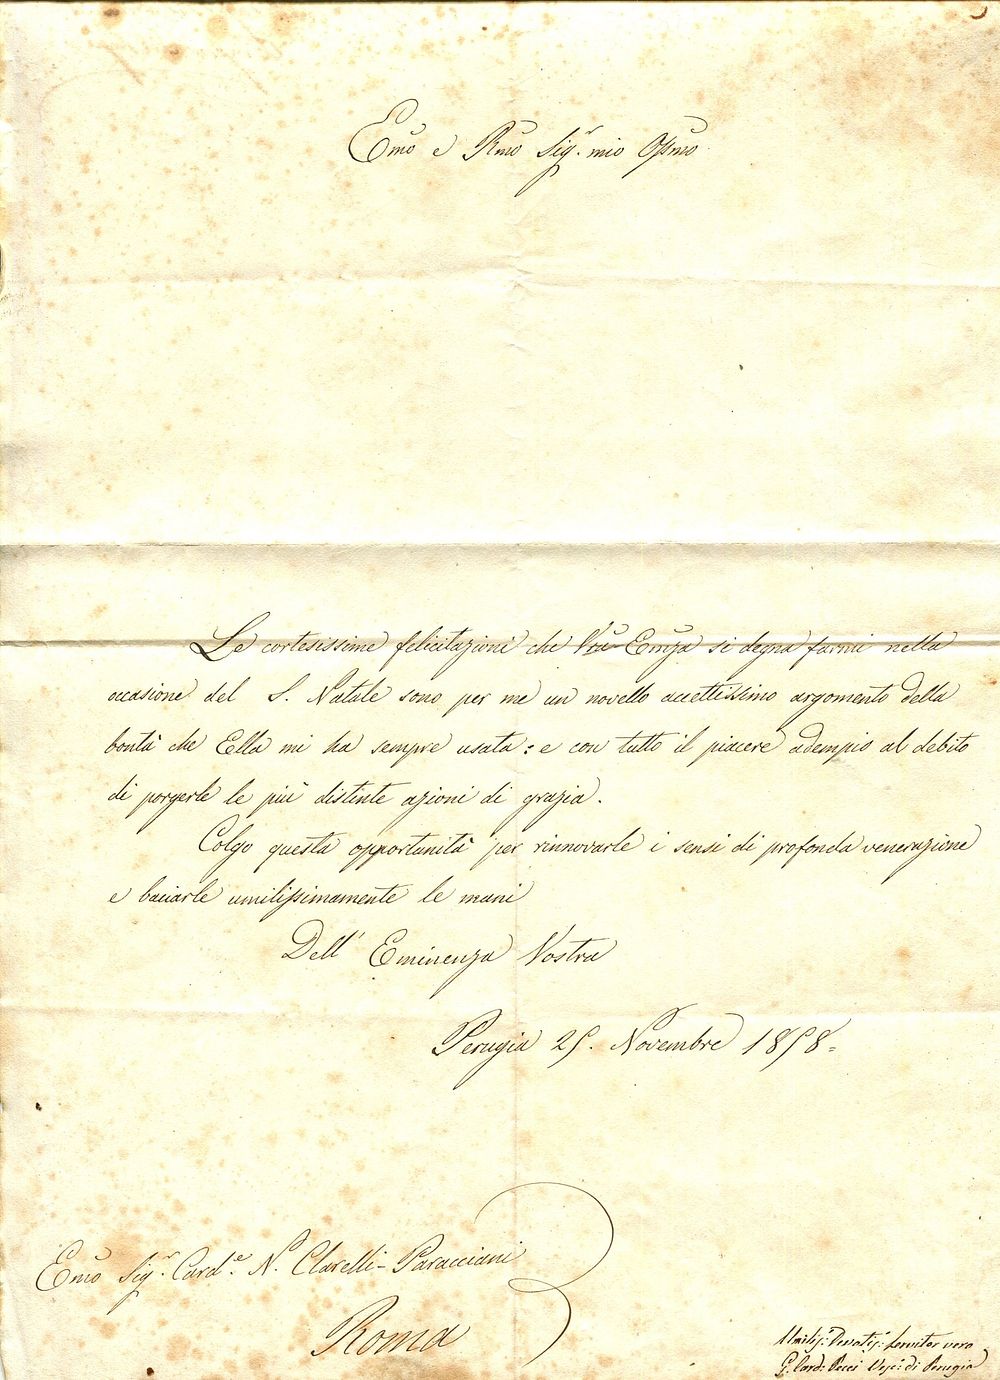 Emo e Rmo Sigr. mio Ossmo
Le cortesissime felicitazioni che Vra Emza si degna farmi nella
occasione del S. Natale sono per me un novello accettissimo argomento della
bontà che Ella mi ha sempre usata: e con tutto il piacere adempio al debito
di porgerle le più distinte azioni di grazia.
Colgo questa opportunità per rinnovarle i sensi di profonda venerazione
e baciarle umilissimamente le mani
Dell' Eminenza Vostra
Perugia 25. Novembre 1858=
Emo Sigr. Carde. N. Clarelli-Paracciani
Roma
Umiliss: Devotis: servitor vero
G. Card: Pecci Vesc: di Perugia